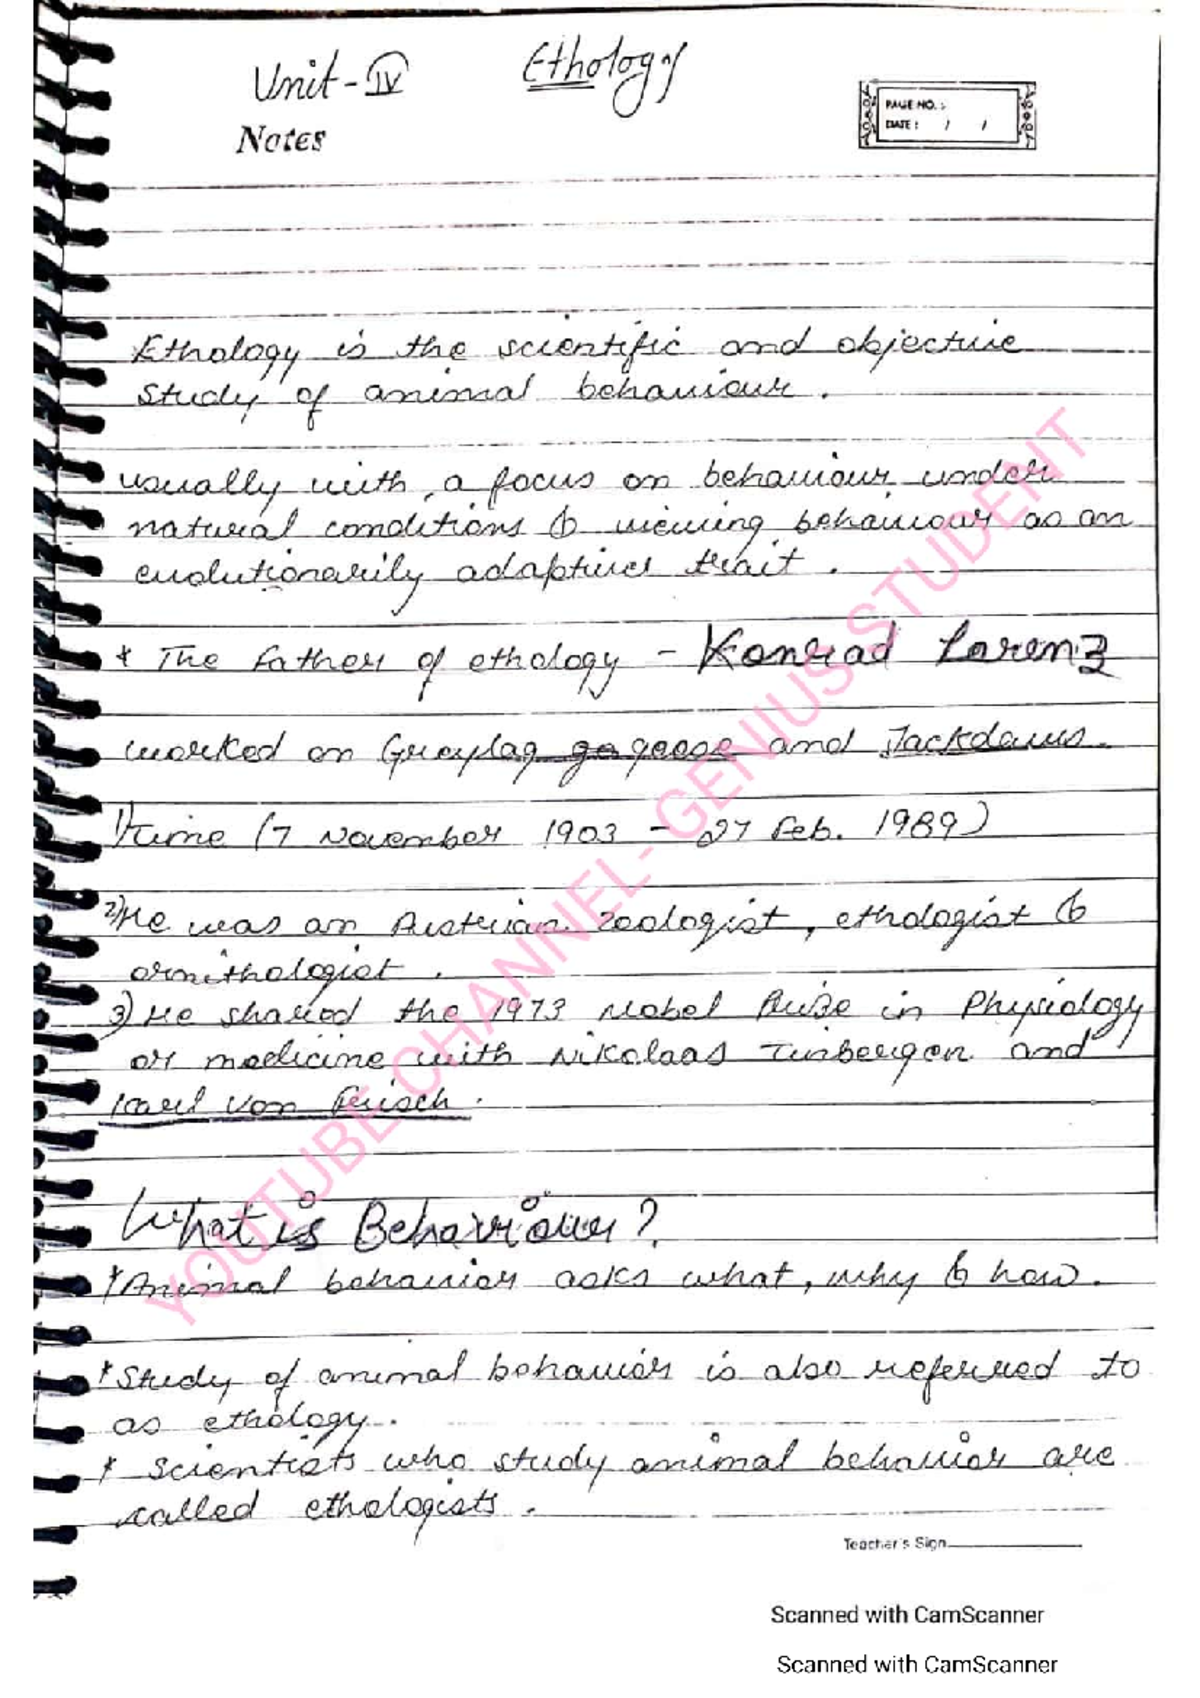 Unit-IV Ethology
Notes
PAGE NO. :
DATE : / /
Ethology is the scientific and objective
study of animal behaviour.
usually with a focus on behaviour under
natural conditions & viewing behaviour as an
evolutionarily adaptive trait.
* The father of ethology - Konrad Lorenz
worked on Greylag goose and Jackdaws.
1) time (7 November 1903 - 27 Feb. 1989)
2) He was an Austrian zoologist, ethologist &
ornithologist.
3) He shared the 1973 Nobel Prize in Physiology
or medicine with Nikolaas Tinbergen and
Karl von Frisch.
What is Behaviour?
* Animal behavior asks what, why & how.
* Study of animal behavior is also referred to
as ethology.
* Scientists who study animal behavior are
called ethologists.
Teacher's Sign
Scanned with CamScanner
Scanned with CamScanner
YOUTUBE CHANNEL- GENIUS STUDENT